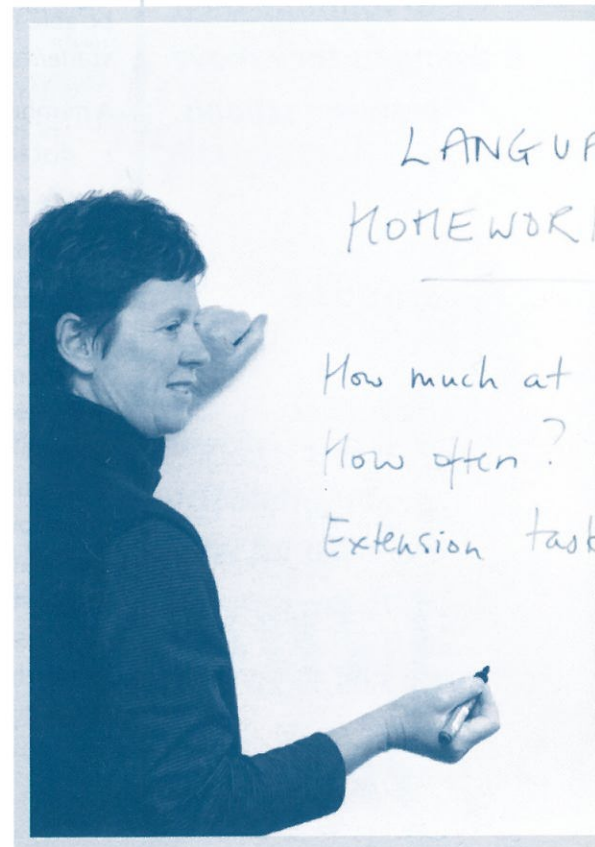 LANGUA
HOMEWOR
How much at
How often?
Extension task